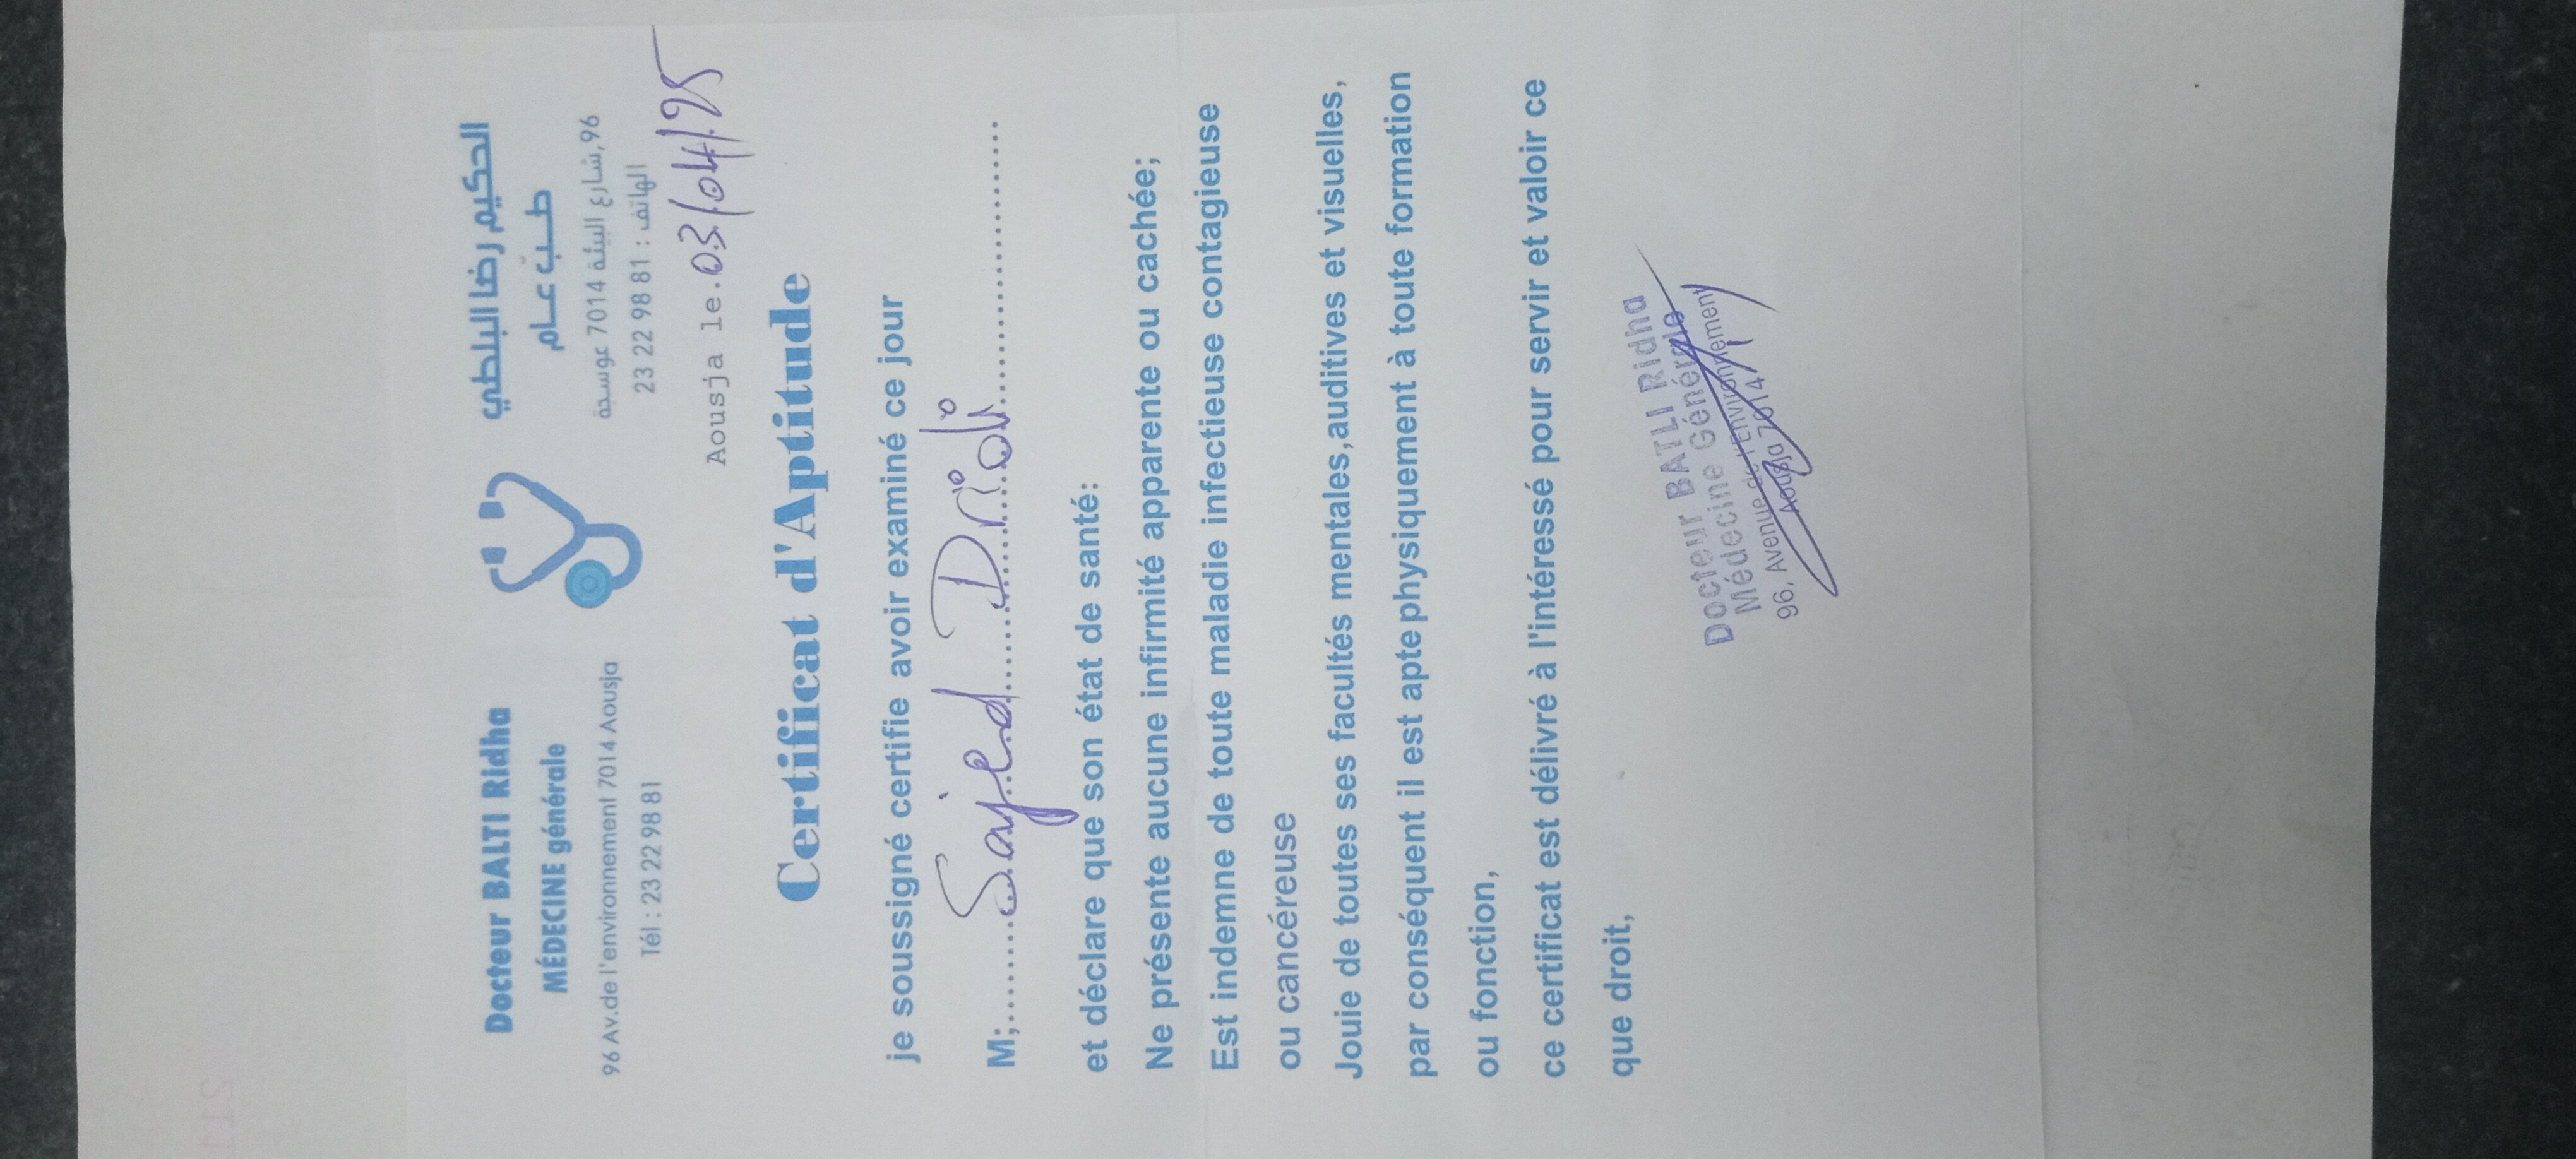 Docteur BALTI Ridha
MÉDECINE générale
96 Av.de l'environnement 7014 Aousja
Tél : 23 22 98 81
الحكيم رضا البلطي
طـب عـام
96,شارع البيئة 7014 عوسجة
الهاتف : 81 98 22 23
Aousja le.03/04/25
Certificat d'Aptitude
je soussigné certifie avoir examiné ce jour
M;.......Sajed Dridi.......
et déclare que son état de santé:
Ne présente aucune infirmité apparente ou cachée;
Est indemne de toute maladie infectieuse contagieuse
ou cancéreuse
Jouie de toutes ses facultés mentales,auditives et visuelles,
par conséquent il est apte physiquement à toute formation
ou fonction,
ce certificat est délivré à l'intéressé pour servir et valoir ce
que droit,
Docteur BATLI Ridha
Médecine Générale
96, Avenue de l'Environnement
Aousja 7014